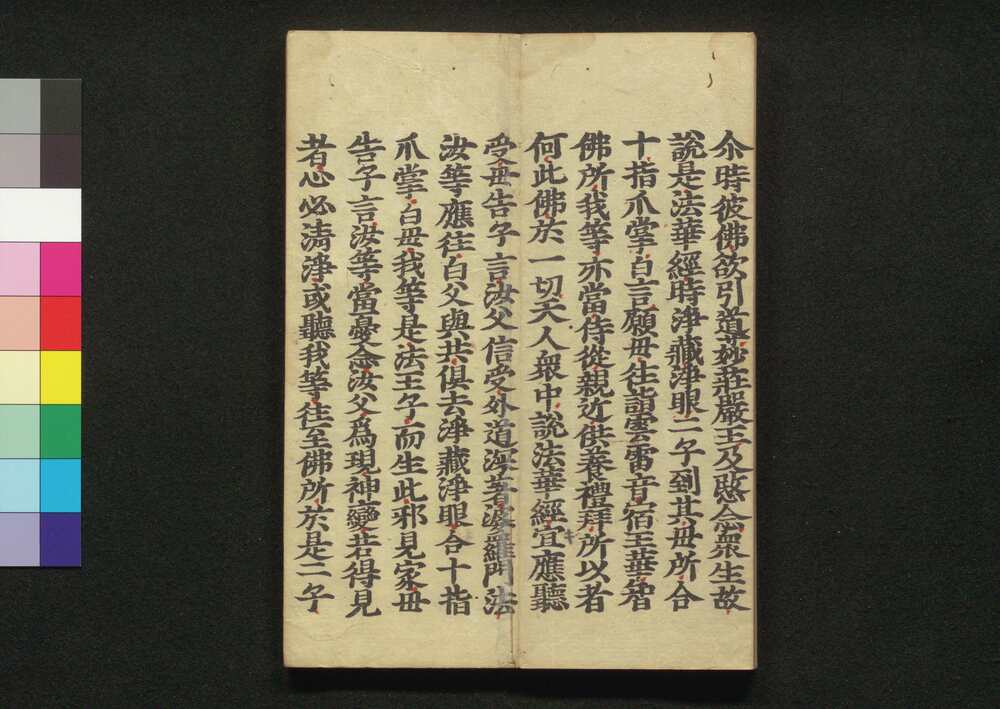 尒時彼佛欲引導妙莊嚴王及愍念衆生故
說是法華經時淨藏淨眼二子到其母所合
十指爪掌白言願母往詣雲雷音宿王華智
佛所我等亦當侍從親近供養禮拜所以者
何此佛於一切天人衆中說法華經宜應聽
受母告子言汝父信受外道深著婆羅門法
汝等應往白父與共俱去淨藏淨眼合十指
爪掌白母我等是法王子而生此邪見家母
告子言汝等當憂念汝父爲現神變若得見
者心必淸淨或聽我等往至佛所於是二子